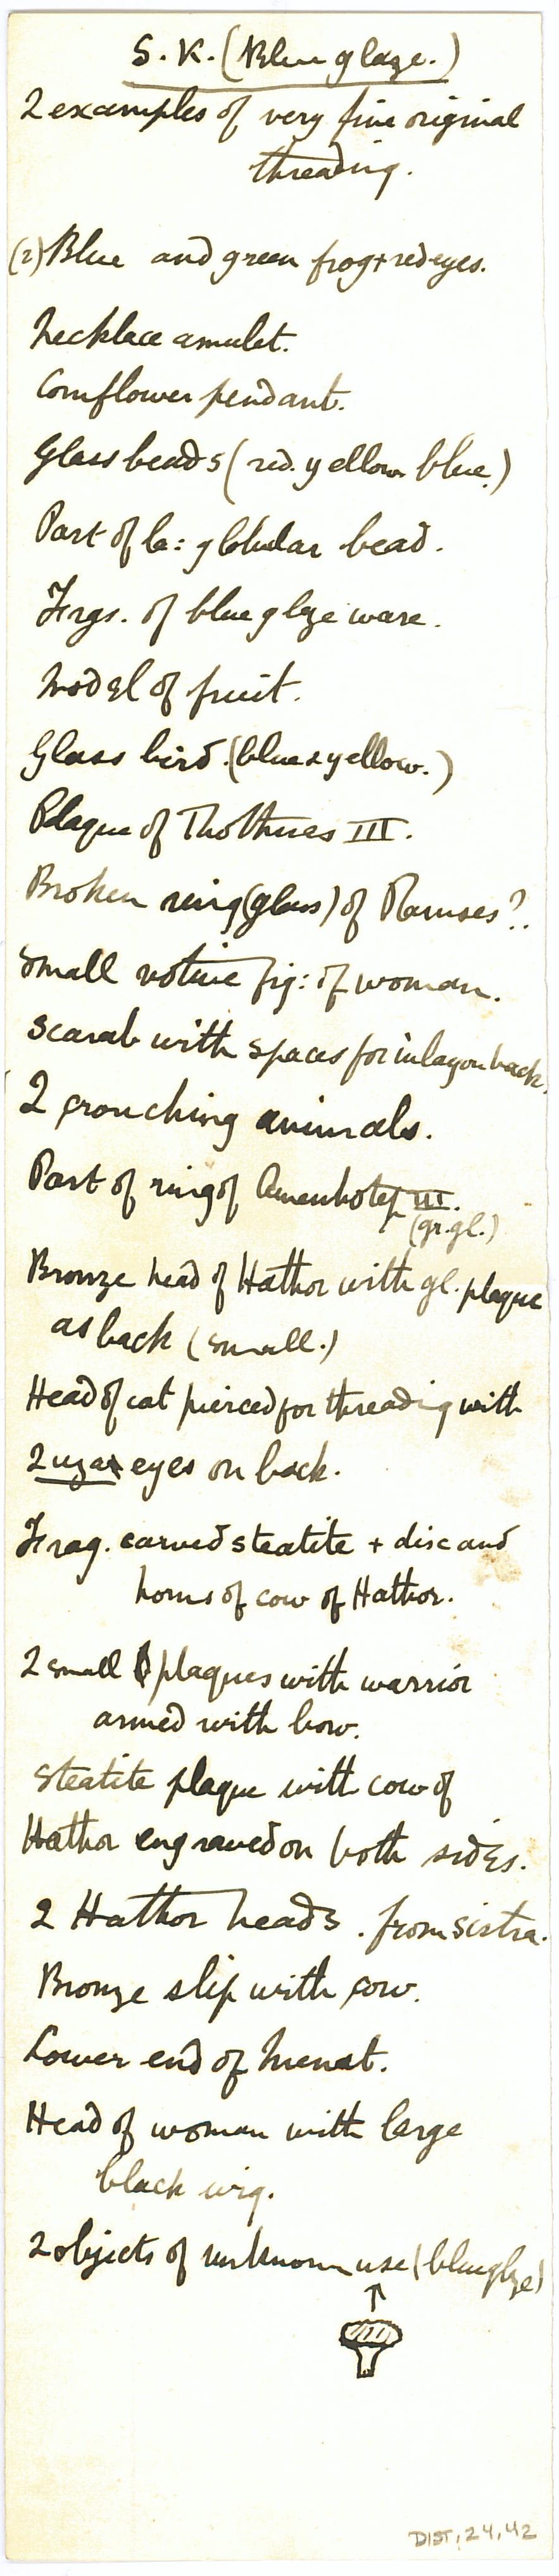 S.K. (Blue glaze.)
2 examples of very fine original
threading.
(2) Blue and green frog + red eyes.
Necklace amulet.
Cornflower pendant.
Glass beads (red. yellow blue.)
Part of la: globular bead.
Frgs. of blue glze ware.
Model of fruit.
Glass bird. (blue & yellow.)
Plaque of Thothmes III.
Broken ring (glass) of Ramses?.
Small votive fig: of woman.
Scarab with spaces for inlay on back.
2 crouching animals.
Part of ring of Amenhotep III.
(gr. gl.)
Bronze head of Hathor with gl. plaque
as back (small.)
Head of cat pierced for threading with
2 uzat eyes on back.
Frag. carved steatite + disc and
horns of cow of Hathor.
2 small plaques with warrior
armed with bow.
Steatite plaque with cow of
Hathor engraved on both sides.
2 Hathor heads. from sistra.
Bronze slip with cow.
Lower end of Menat.
Head of woman with large
black wig.
2 objects of unknown use (blue glze)
DIST. 24.42